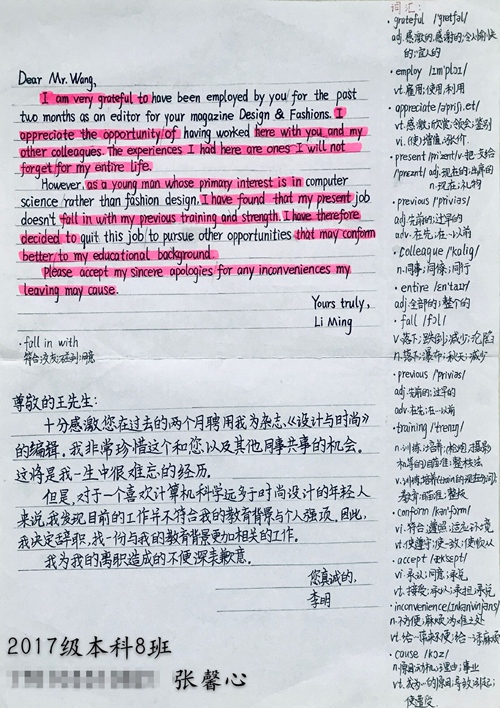 Dear Mr. Wang,
I am very grateful to have been employed by you for the past
two months as an editor for your magazine Design & Fashions. I
appreciate the opportunity of having worked here with you and my
other colleagues. The experiences I had here are ones I will not
forget for my entire life.
However, as a young man whose primary interest is in computer
science rather than fashion design, I have found that my present job
doesn't fall in with my previous training and strength. I have therefore
decided to quit this job to pursue other opportunities that may conform
better to my educational background.
Please accept my sincere apologies for any inconveniences my
leaving may cause.
Yours truly,
Li Ming
·fall in with
尊敬的王先生:
十分感激您在过去的两个月聘用我为杂志《设计与时尚》
的编辑。我非常珍惜这个和您以及其他同事共事的机会。
这将是我一生中很难忘的经历。
但是,对于一个喜欢计算机科学远多于时尚设计的年轻人
来说,我发现目前的工作并不符合我的教育背景与个人强项。因此,
我决定辞职,找一份与我的教育背景更加相关的工作。
我为我的离职造成的不便深表歉意。
您真诚的,
李明
2017级本科8班
张馨心
词汇:
·grateful /'greɪtfəl/
adj.感激的;感谢的;令人愉快
的;宜人的
·employ /ɪm'plɔɪ/
vt.雇用;使用;利用
·appreciate
vt.感激;欣赏;领会;鉴别
vi.(使)增值;涨价
·present
adj.现在的;出席的
n.现在;礼物
·previous /'priviəs/
adj.先前的;过早的
adv.在先;在…以前
·colleague /'kɑlig/
n.同事;同僚;同行
·entire /ɪn'taɪr/
adj.全部的;整个的
·fall /fɔl/
v.落下;跌倒;减少;沦陷
n.落下;瀑布;秋天;减少
·previous /'priviəs/
adj.先前的;过早的
adv.在先;在…以前
·training /'trenɪŋ/
·conform /kən'fɔrm/
·accept /əkˈsɛpt/
vi.承认;同意;承兑
vt.接受;承认;承担;承兑
·inconvenience
n.不便;麻烦
·cause /kɔz/
n.原因;动机;理由;事业